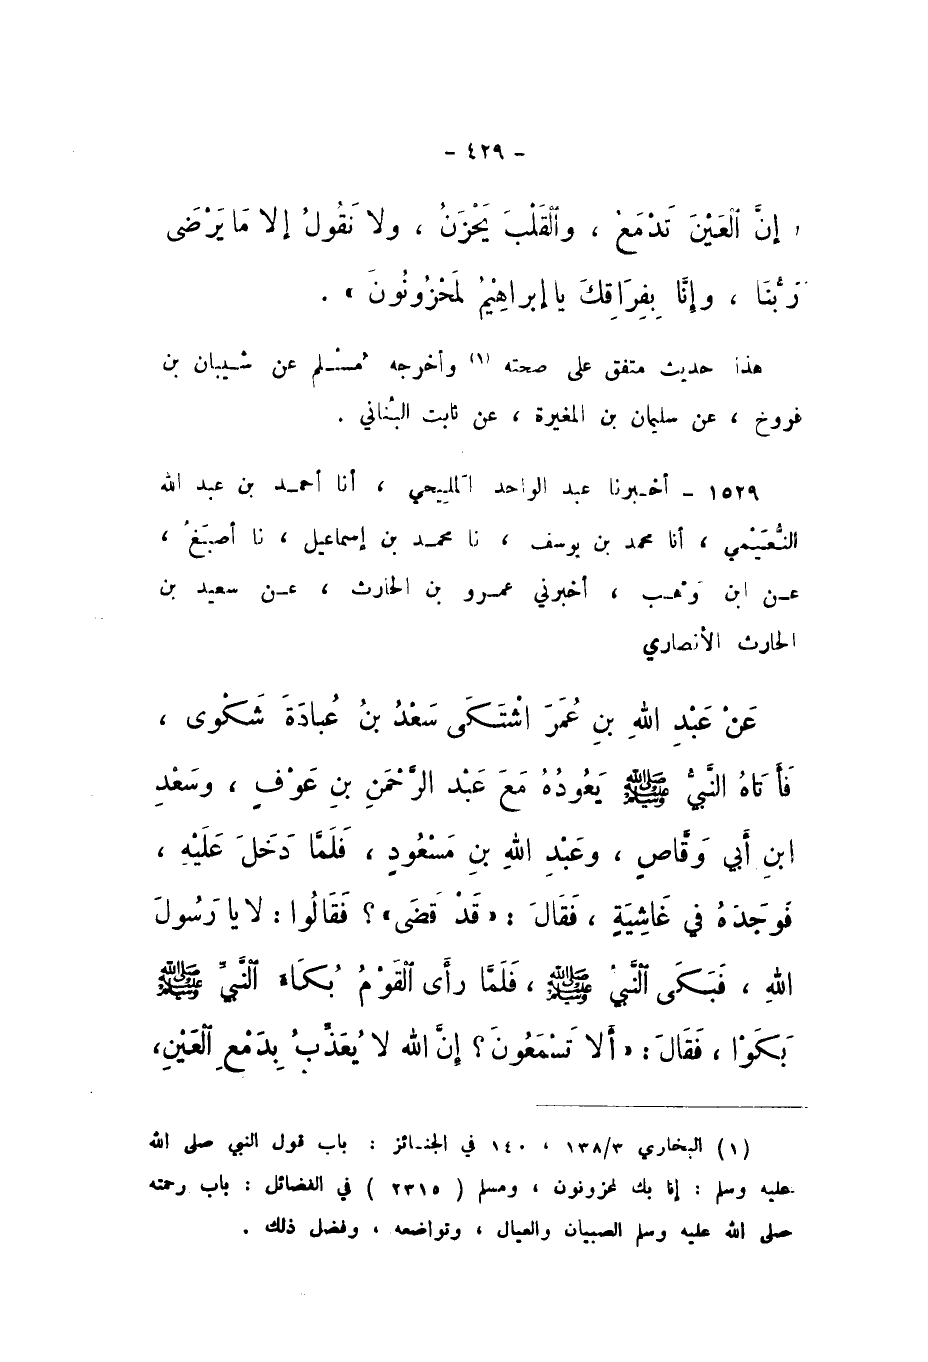 - ٤٢٩ -
« إنَّ ٱلعَيْنَ تَدْمَعُ ، وٱلقَلْبَ يَحْزَنُ ، ولا نَقُولُ إلا مَا يَرْضَى
رَبُّنَا ، وإنَّا بِفِرَاقِكَ يا إبراهِيْمُ لَمَحْزُونُونَ » .
هذا حديث متفق على صحته (١) وأخرجه مُسْلم عن شيبان بن
فروخ ، عن سليمان بن المغيرة ، عن ثابت البُناني .
١٥٢٩ - أخبرنا عبد الواحد المَلِيحي ، أنا أحمد بن عبد الله
النُّعَيْمي ، أنا محمد بن يوسف ، نا محمد بن إسماعيل ، نا أصبَغُ ،
عن ابن وَهْب ، أخبرني عمرو بن الحارث ، عن سعيد بن
الحارث الأنصاري
عَنْ عَبْدِ اللهِ بنِ عُمَرَ اشْتَكَى سَعْدُ بنُ عُبادَةَ شَكْوى ،
فَأَتاهُ النَّبيُّ ﷺ يَعُودُهُ مَعَ عَبْد الرَّحْمَنِ بنِ عَوْفٍ ، وسَعْدِ
ابنِ أَبي وَقَّاصٍ ، وعَبْدِ اللهِ بنِ مَسْعُودٍ ، فَلَمَّا دَخَلَ عَلَيْهِ ،
فَوجَدَهُ في غَاشِيَةٍ ، فَقَالَ : « قَدْ قَضَى » ؟ فَقَالُوا : لا يا رَسُولَ
اللهِ ، فَبَكَى ٱلنَّبيُّ ﷺ ، فَلَمَّا رأَى ٱلقَوْمُ بُكَاءَ ٱلنَّبيِّ ﷺ
بَكَوْا ، فَقَالَ : « أَلا تَسْمَعُونَ ؟ إنَّ الله لا يُعَذِّبُ بِدَمْعِ ٱلعَيْنِ،
(١) البخاري ١٣٨/٣ ، ١٤٠ في الجنائز : باب قول النبي صلى الله
عليه وسلم : إنا بك لمحزونون ، ومسلم ( ٢٣١٥ ) في الفضائل : باب رحمته
صلى الله عليه وسلم الصبيان والعيال ، وتواضعه ، وفضل ذلك .